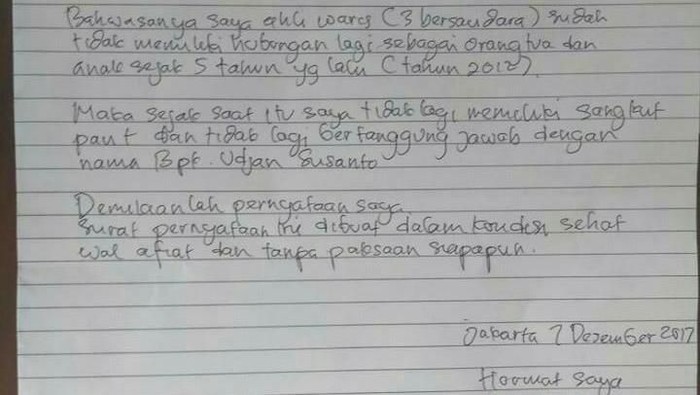 Bahwasanya saya ahli waris (3 bersaudara) sudah
tidak memiliki hubungan lagi sebagai orang tua dan
anak sejak 5 tahun yg lalu (tahun 2012).
Maka sejak saat itu saya tidak lagi memiliki sangkut
paut dan tidak lagi bertanggung jawab dengan
nama Bpk. Udjan Susanto
Demikianlah pernyataan saya
surat pernyataan ini dibuat dalam kondisi sehat
wal afiat dan tanpa paksaan siapapun.
Jakarta 7 Desember 2017
Hormat saya